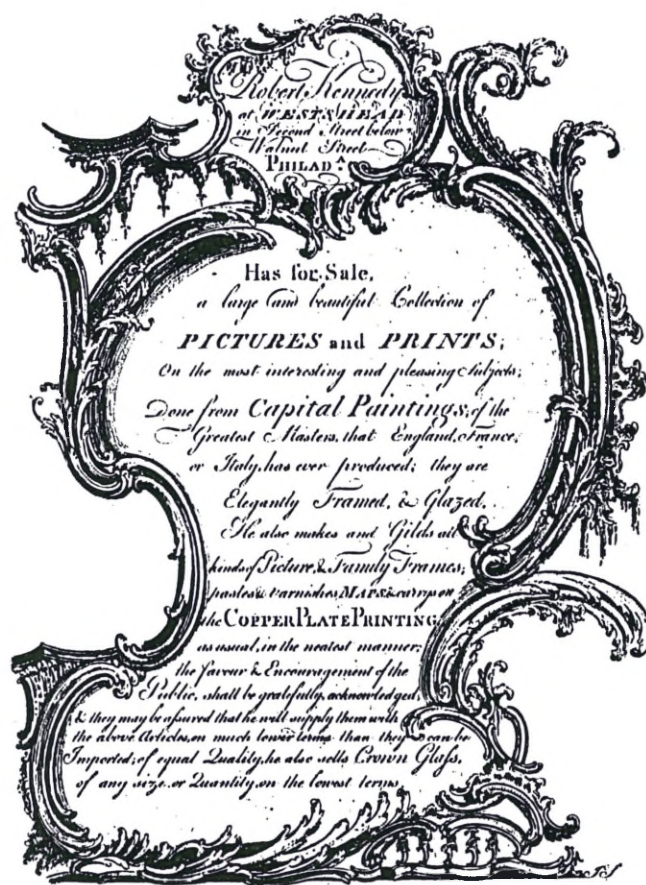 Robert Kennedy
at WESTS HEAD
in Second Street below
Walnut Street
PHILADᴬ
Has for Sale,
a large and beautiful Collection of
PICTURES and PRINTS;
On the most interesting and pleasing Subjects;
Done from Capital Paintings, of the
Greatest Masters, that England, France,
or Italy, has ever produced; they are
Elegantly Framed, & Glazed.
He also makes and Gilds all
kinds of Picture, & Family Frames;
pastes & varnishes MAPS & carrys on
the COPPER PLATE PRINTING
as usual, in the neatest manner;
the favour & Encouragement of the
Public, shall be gratefully acknowledged,
& they may be assured that he will supply them with
the above Articles, on much lower terms than they can be
Imported; of equal Quality, he also sells Crown Glass,
of any size or Quantity, on the lowest terms.